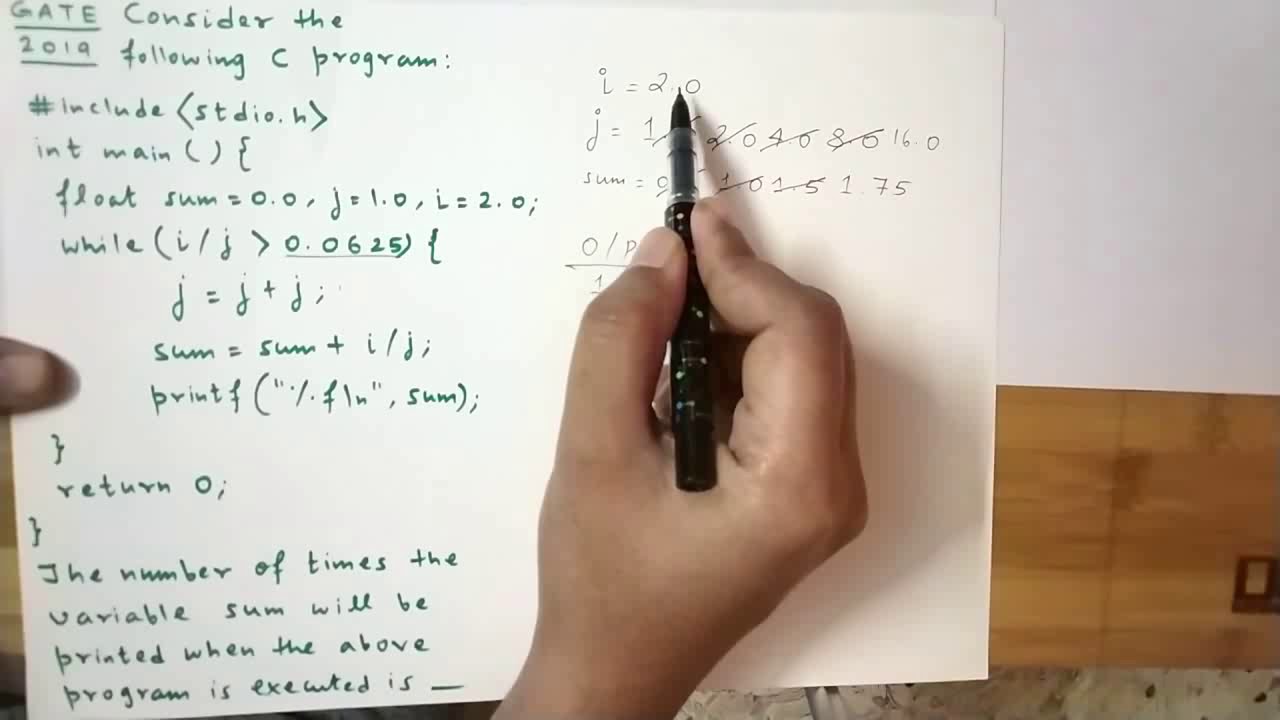 GATE Consider the
2019 following C program:
#include <stdio.h>
int main() {
float sum = 0.0, j = 1.0, i = 2.0;
while (i / j > 0.0625) {
j = j + j;
sum = sum + i/j;
printf ("%f\n", sum);
}
return 0;
}
The number of times the
variable sum will be
printed when the above
program is executed is —
i = 2.0
j = 1 2.0 4.0 8.0 16.0
sum = 1.0 1.5 1.75
O/P
1